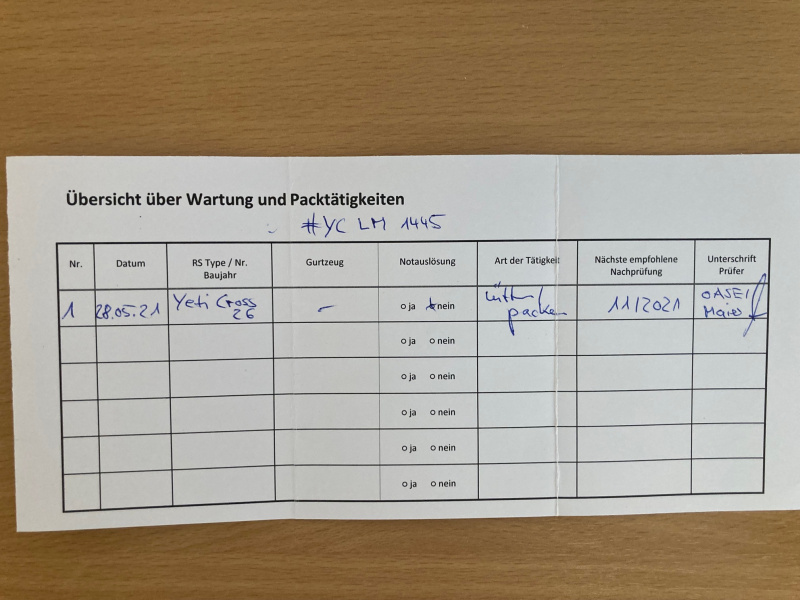 Übersicht über Wartung und Packtätigkeiten
#YC LM 1445
Nr. Datum RS Type / Nr. Baujahr Gurtzeug Notauslösung Art der Tätigkeit Nächste empfohlene Nachprüfung Unterschrift Prüfer
1 28.05.21 Yeti Cross 26 – o ja o nein lüften/ packen 11/2021 OASE/ Maier
o ja o nein
o ja o nein
o ja o nein
o ja o nein
o ja o nein